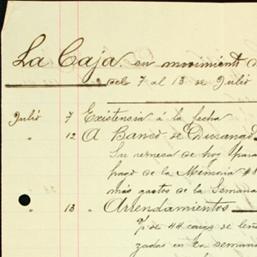 La Caja en movimiento d
del 7 al 13 de Julio
Julio 7 Existencia á la fecha
" 12 A Banco de
Su remesa de hoy para
pago de la Memoria #8
más gastos de la Semana
" 13 Arrendamientos
de 44 carros de leña
zadas en la semana